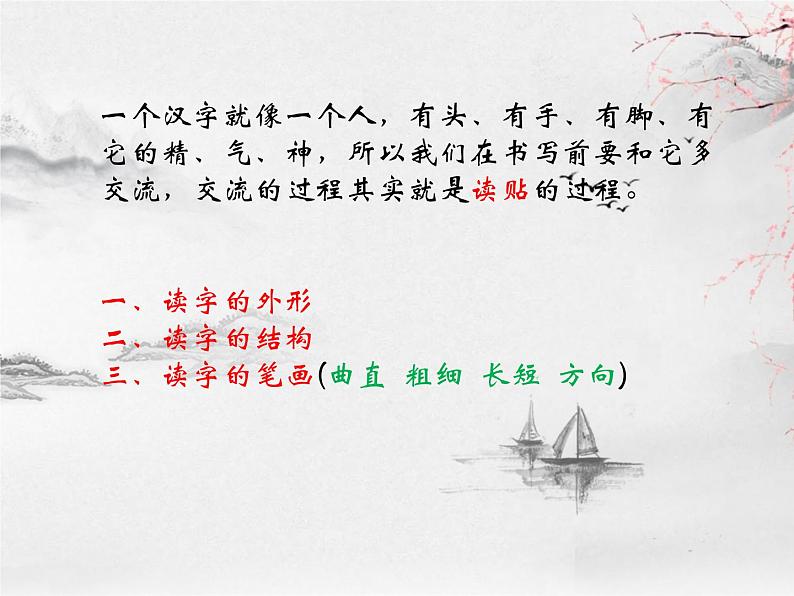 一个汉字就像一个人，有头、有手、有脚、有
它的精、气、神，所以我们在书写前要和它多
交流，交流的过程其实就是读贴的过程。
一、读字的外形
二、读字的结构
三、读字的笔画(曲直 粗细 长短 方向)